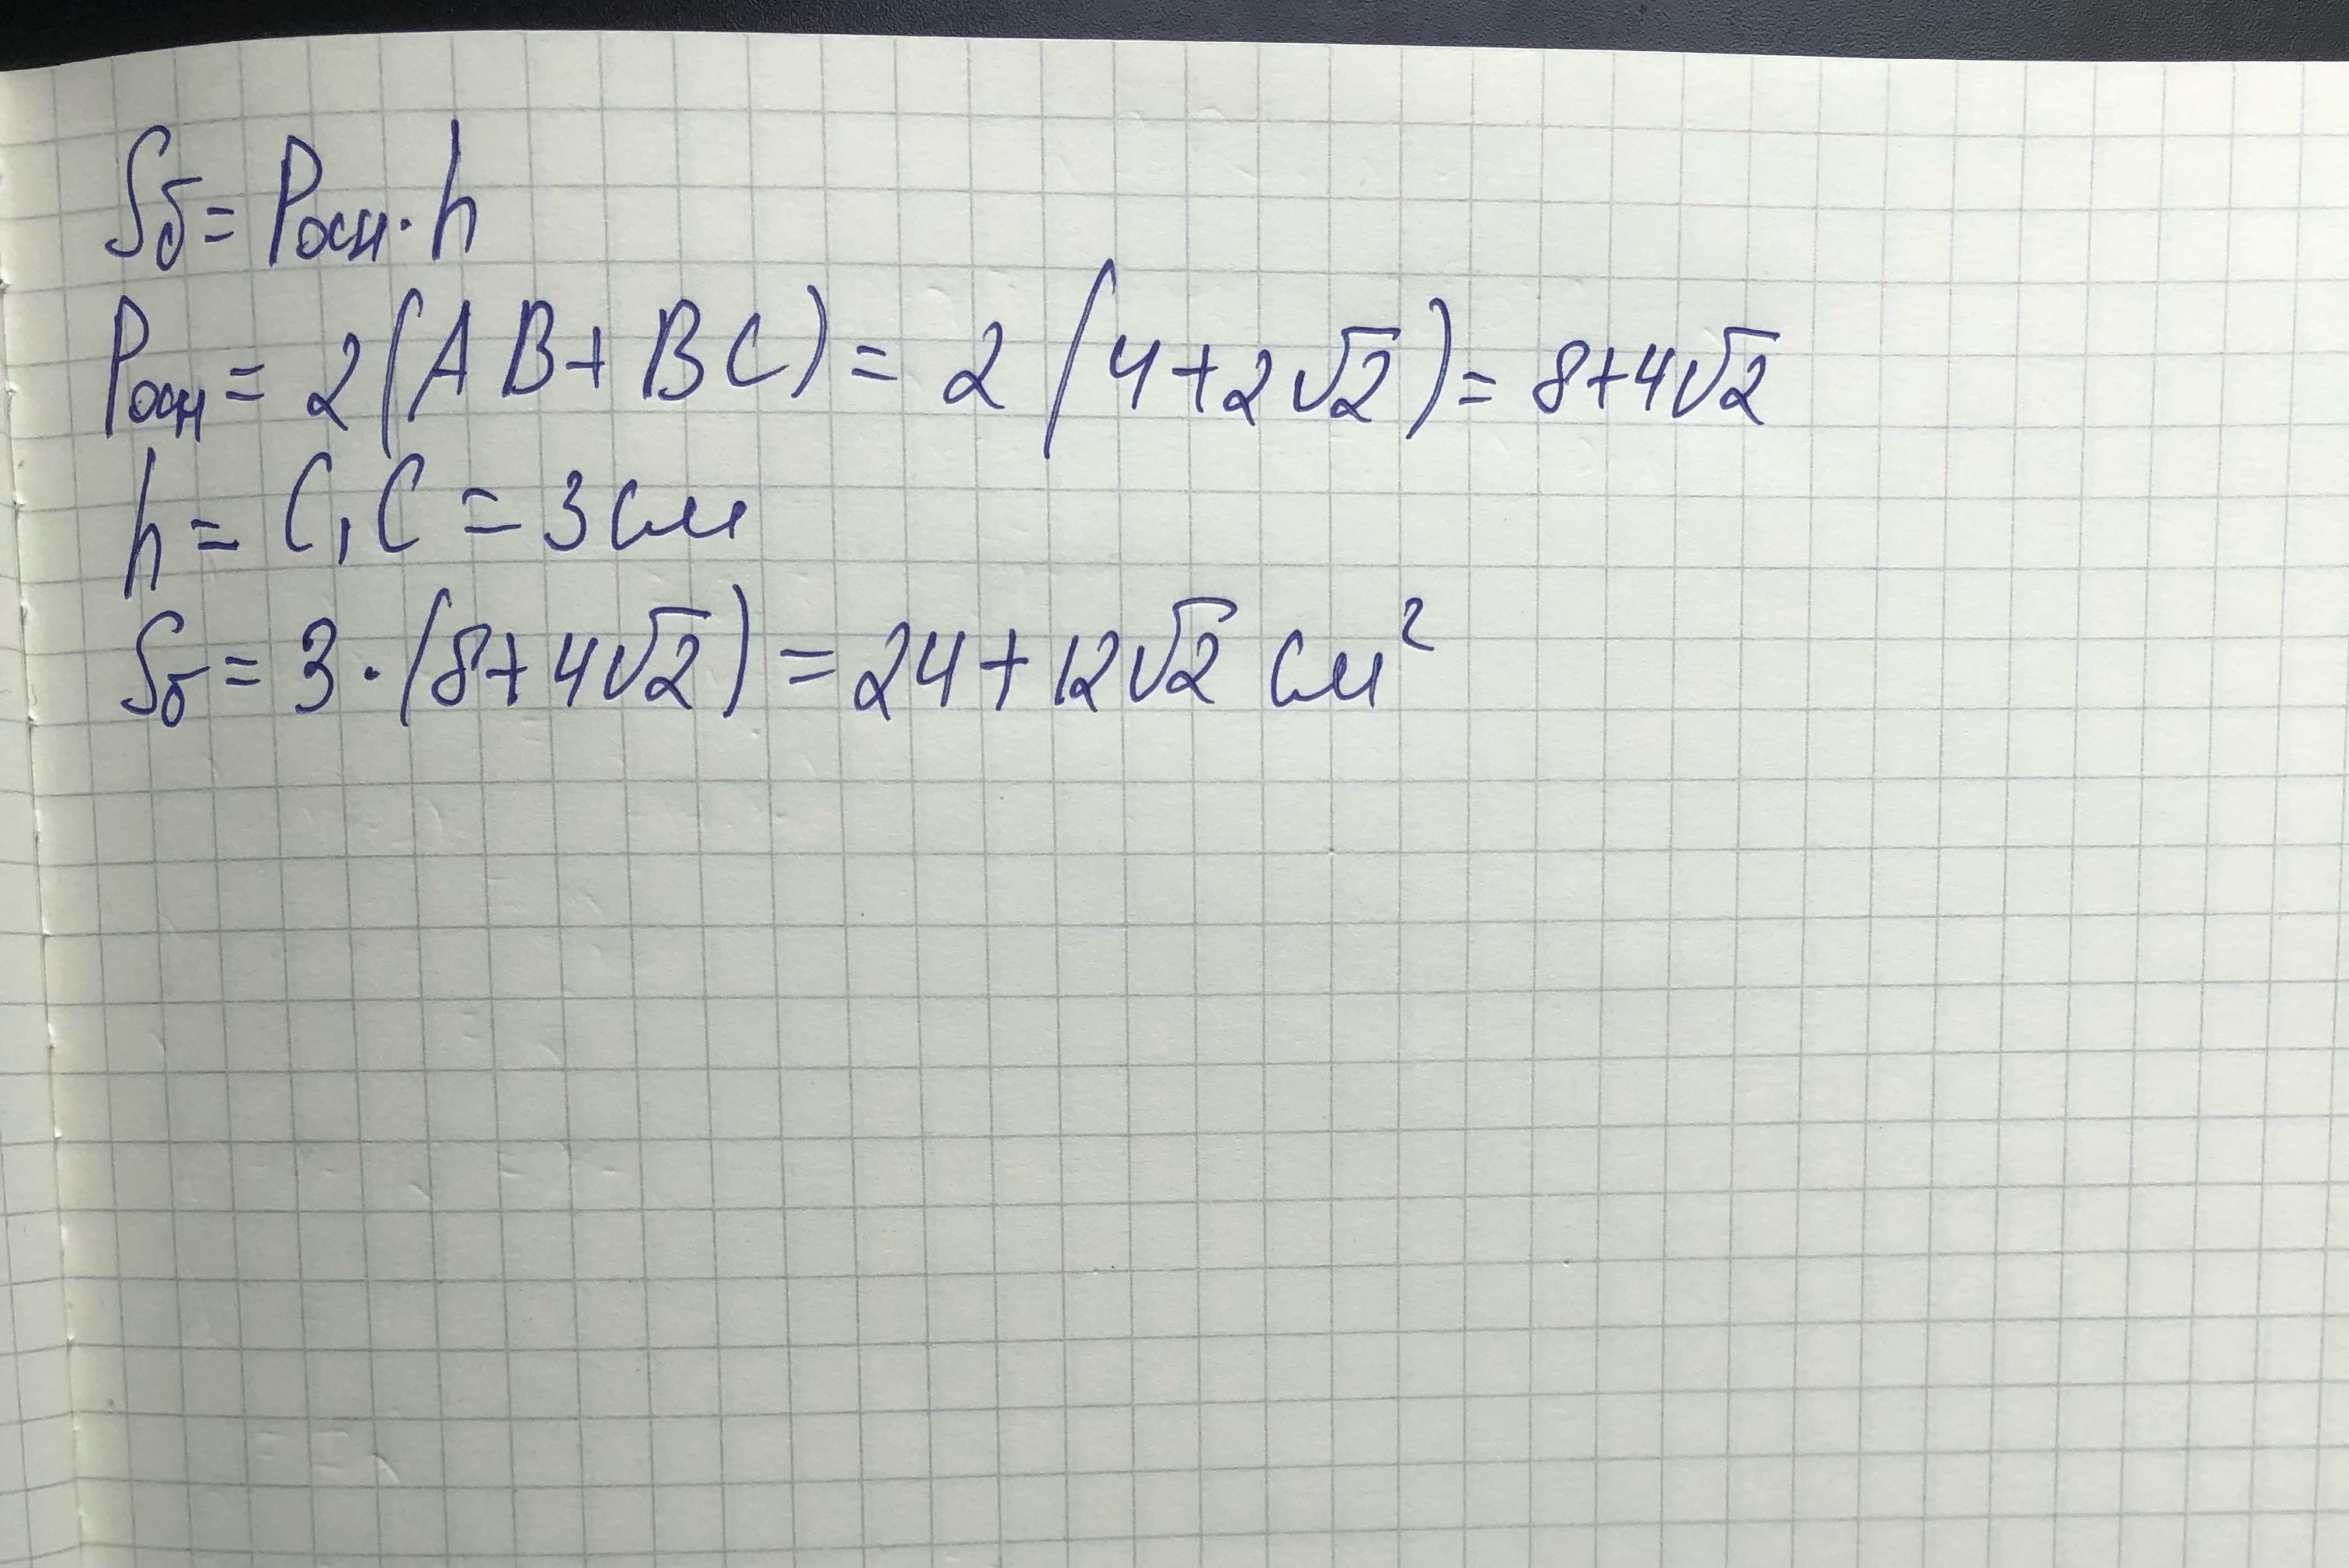 Sб = Pосн · h
Pосн = 2(AB + BC) = 2(4 + 2√2) = 8 + 4√2
h = C₁C = 3 см
Sб = 3 · (8 + 4√2) = 24 + 12√2 см²